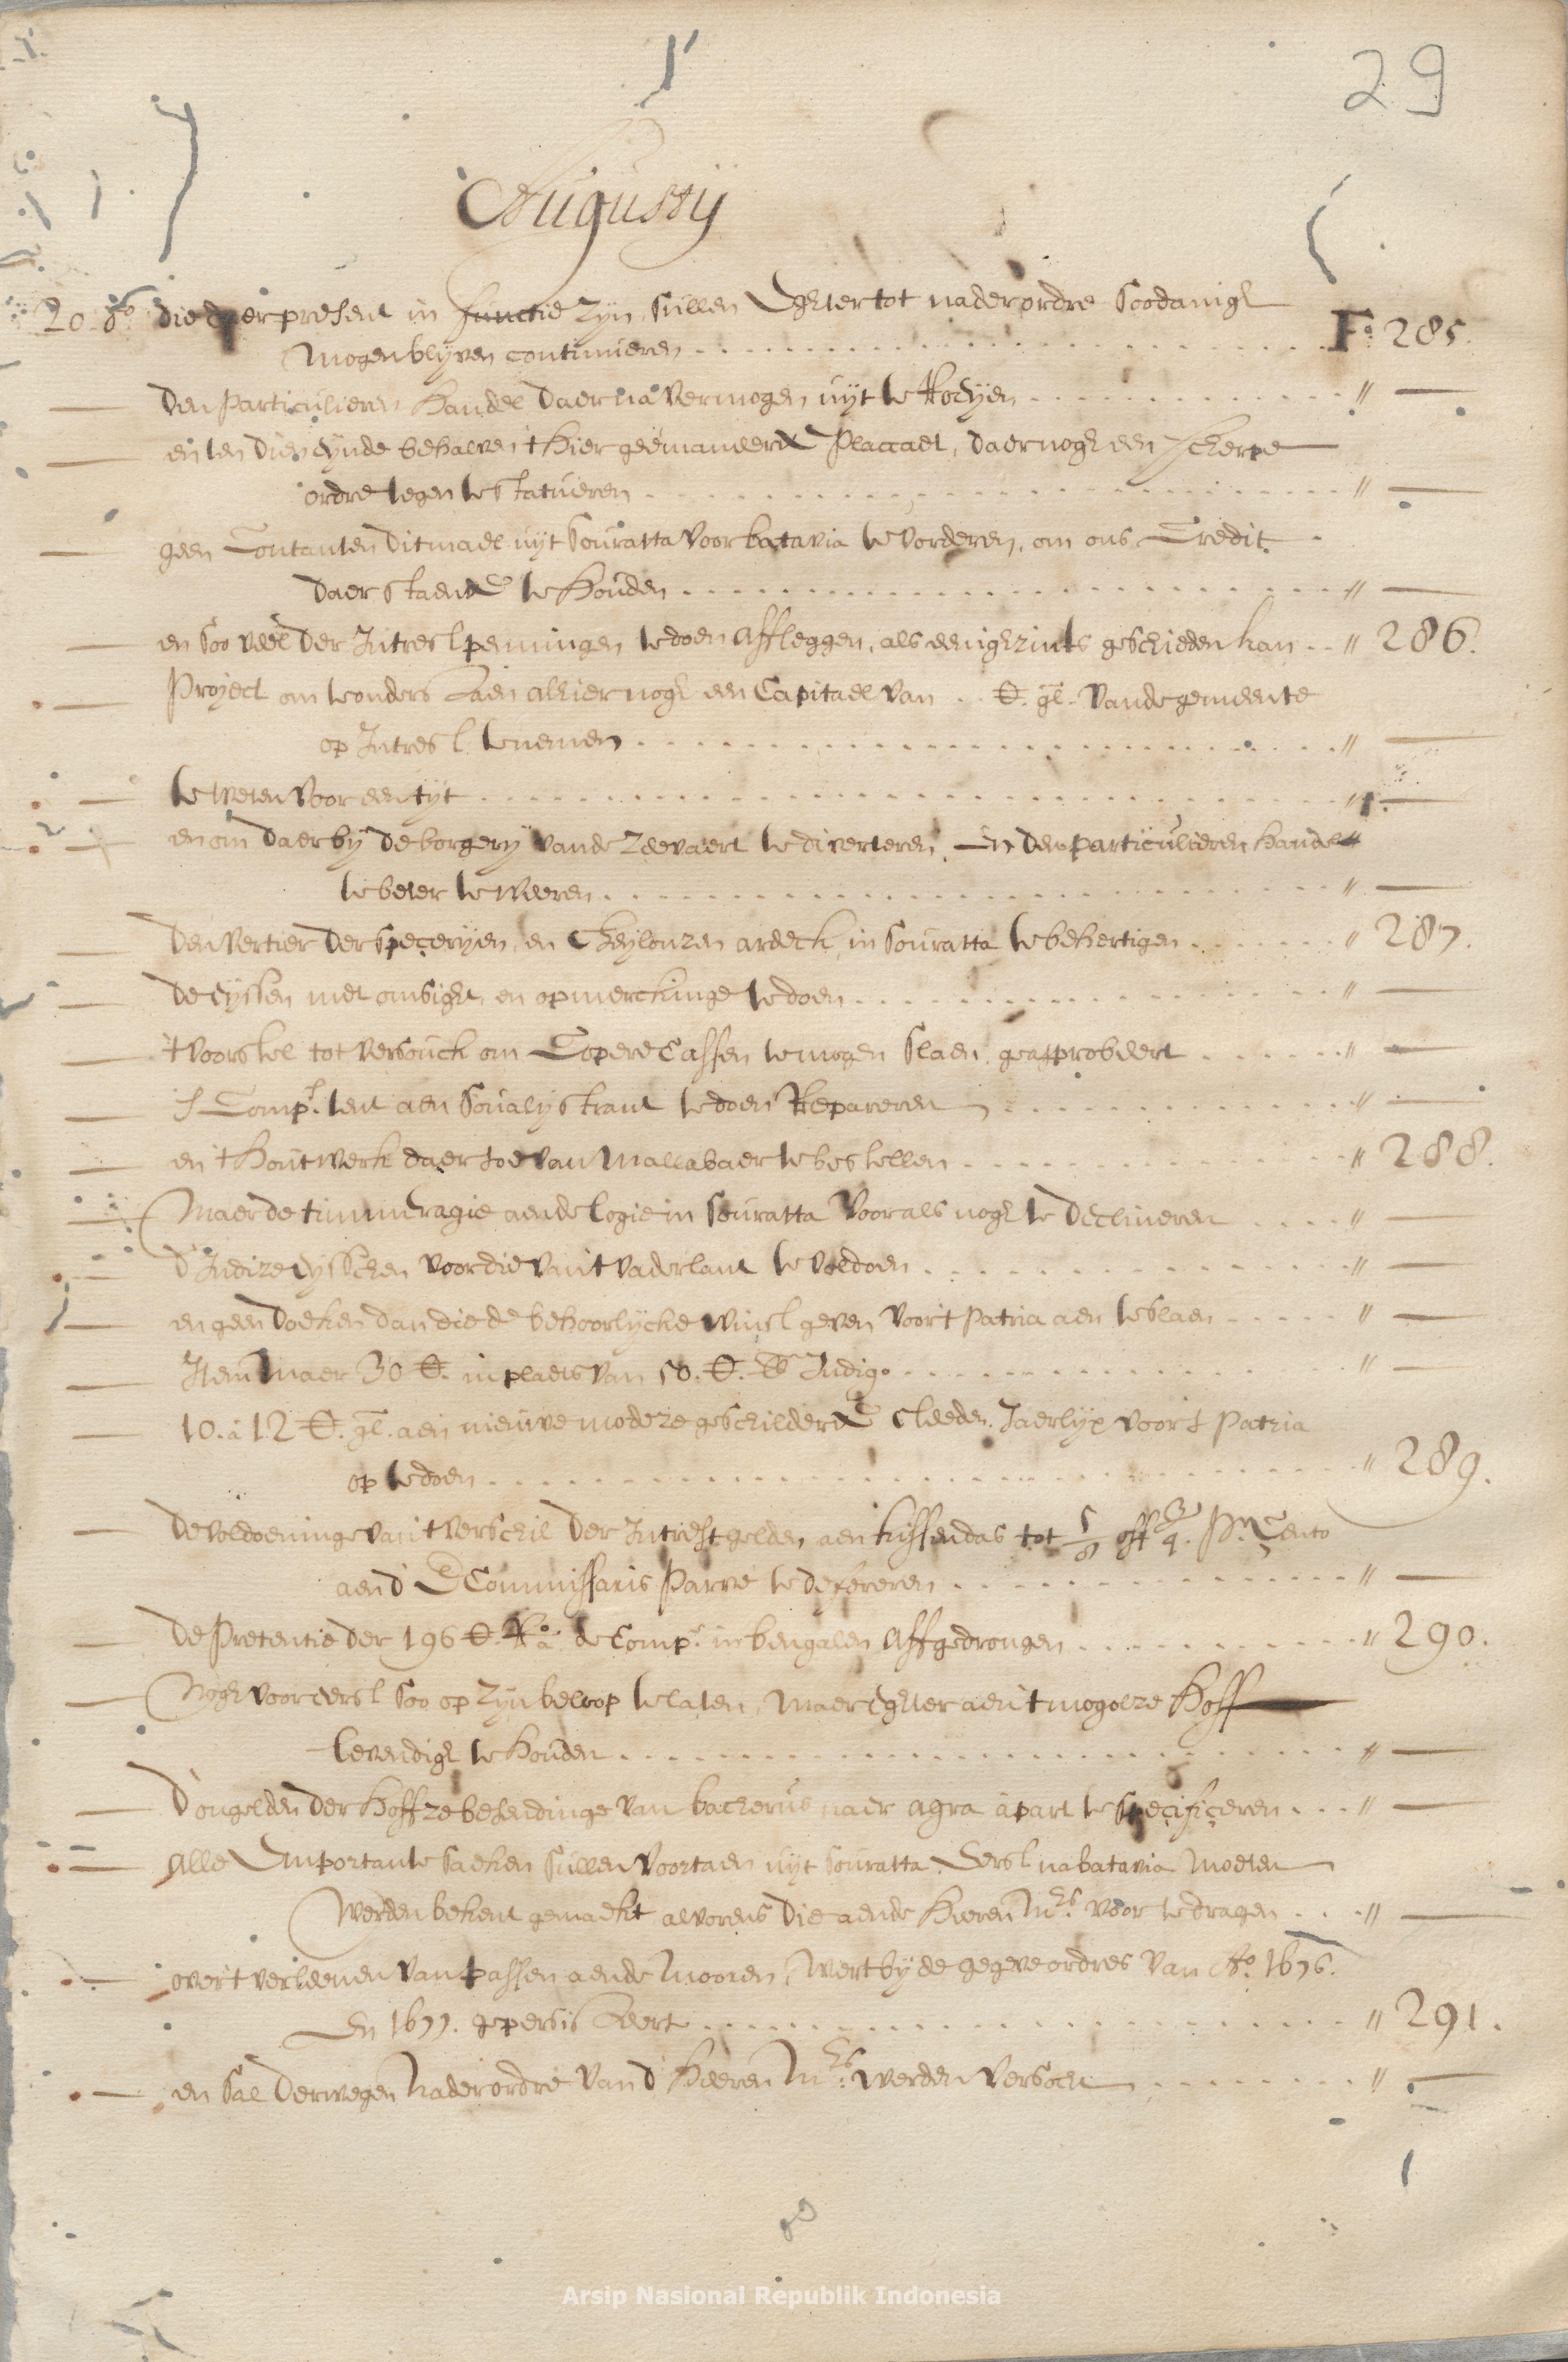 29
Augustij
20 do die daer present in functie zijn, sullen egter tot nader ordre soodanigh
mogen blijven continueren F.o 285.
— den particulieren handel daer na vermogen uijt te roeijen " —
— en ten dien eijnde behalven 't hier geëmaneerde placcaet, daer nogh een scherpe
ordre tegen te statueren " —
— geen contanten ditmael uijt Souratta voor batavia te vorderen, om ons Credit
daer staende te houden " —
— en soo veel der Intrest penningen te doen affleggen, als eenighzints geschieden kan " 286.
— Project om t'onders alhier nogh een Capitael van .. gl. vande gemeente
op Intrest te nemen " —
— te weten voor een tijt " —
— en om daer bij de borgerij vande Zeevaert te diverteren, en den particulieren handel
te beter te weeren " —
— den vertier der speçerijen, en Cheijlonzen areeck, in Souratta te behertigen " 287.
— de eijssen met omsight, en opmerckinge te doen " —
— 't voorstel tot versouck om Copere Cassen te mogen slaen, geapprobeert " —
— 's Comp.s tent aen Soualij strant te doen Repareren " —
— en 't houtwerk daer toe van Mallabaer te bestellen " 288.
— Maer de timmeragie aende logie in Souratta voor als nogh te declineren " —
— d'Indize eijsschen voor die van 't vaderlant te voldoen " —
— en geen doeken dan die de behoorlijcke winst geven voor 't patria aen te slaen " —
— Item maer 30 in plaets van 50. lb Indigo " —
— 10. à 12 gl. aen nieuwe modeze geschilderde cleeden Jaerlijx voor 't Patria
op te doen " 289.
— de voldoeninge van 't verschil der Intrest gelden, aen kissendas tot 5/8 off 3/4 p.r Cento
aen d' E Commissaris Parvé te defereren " —
— de Pretentie der 196 Ra. de Comp.e in bengalen affgedrongen " 290.
— Nogh voor eerst soo op zijn beloop te laten, maer egter aen 't mogolze hoff
levendigh te houden " —
— d'ongelden der hoffze besendinge van bacherus naer agra apart te speçifiçeren " —
— Alle Importante saeken sullen voortaen uijt Souratta Eerst na batavia moeten
werden bekent gemaekt alvorens die aende heeren M.rs voor te dragen " —
— over 't verleenen van passen aende mooren, wert bij de gegeve ordres van A.o 1676.
en 1677. gepersisteert " 291.
— en sal derwegen nader ordre van d' heeren M.rs werden versocht " —
Arsip Nasional Republik Indonesia